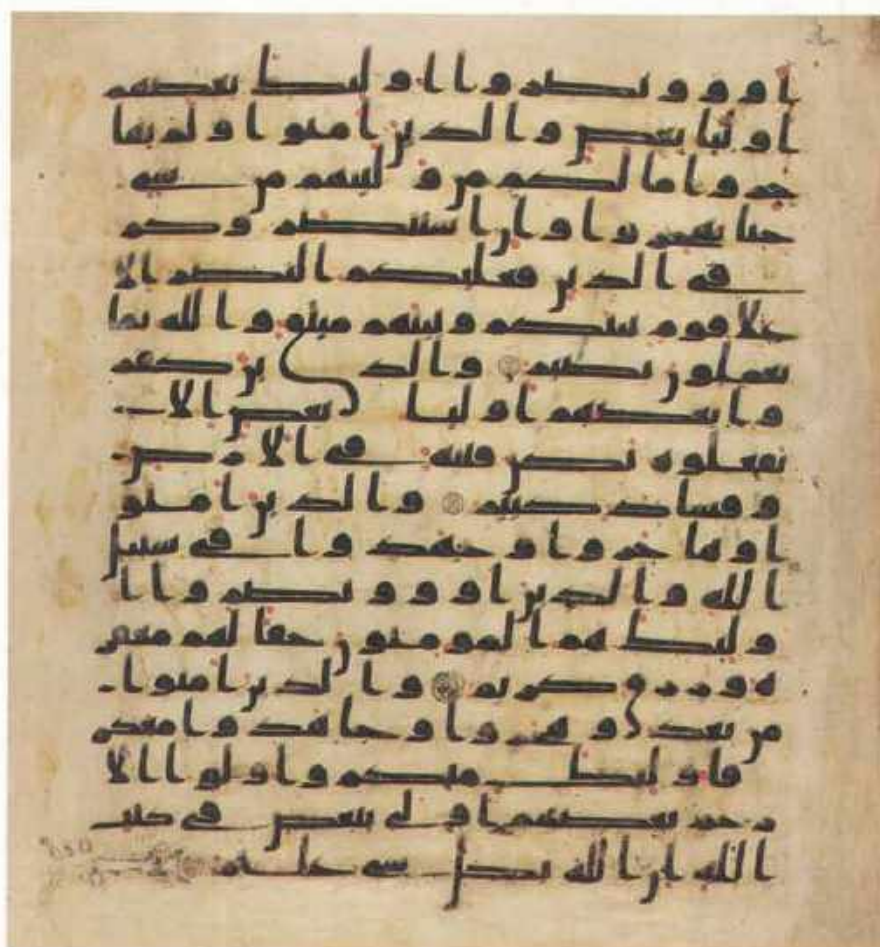 اووا ونصروا اولئك بعضهم
اوليا بعض والذين امنوا ولم يها
جروا ما لكم من وليتهم من شي
حتا يهجروا وان استنصروكم
في الدين فعليكم النصر الا
علا قوم بينكم وبينهم ميثق والله بما
تعملون بصير والذين كفر
وا بعضهم اوليا بعض الا
تفعلوه تكن فتنة في الارض
وفساد كبير والذين امنو
ا وهاجروا وجهدوا في سبيل
الله والذين اووا ونصروا ا
ولئك هم المومنون حقا لهم مغفر
ة ورزق كريم والذين امنوا
من بعد وهجروا وجاهدوا معكم
فاولئك منكم واولوا الا
رحم بعضهم اولى ببعض في كتب
الله ان الله بكل شي عليم